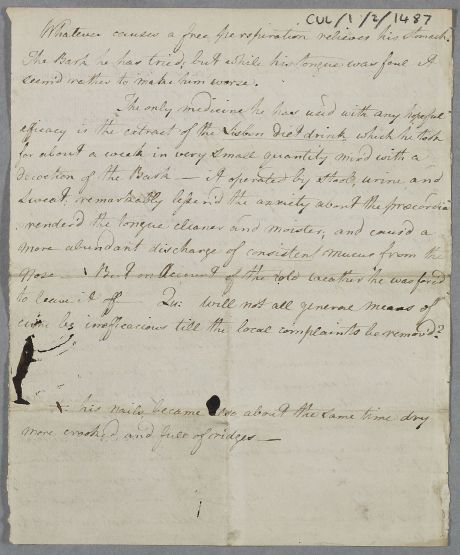 CUL/1/2/1487
Whatever causes a free perspiration relieves his stomach.
The Bark he has tried, but while his tongue was foul it
seem'd rather to make him worse.
The only medicine he has used with any hopeful
efficacy is the extract of the Lisbon Diet drink, which he took
for about a week in very small quantity mix'd with a
decoction of the Bark — it operated by stool, urine and
sweat, remarkably lessen'd the anxiety about the præcordia
render'd the tongue cleaner and moister, and caus'd a
more abundant discharge of consistent mucus from the
Nose — But on Account of the cold weather he was forced
to leave it off — Qu: will not all general means of
cure be inefficacious till the local complaints be removed?
his nails became also about the same time dry
more crooked, and full of ridges —